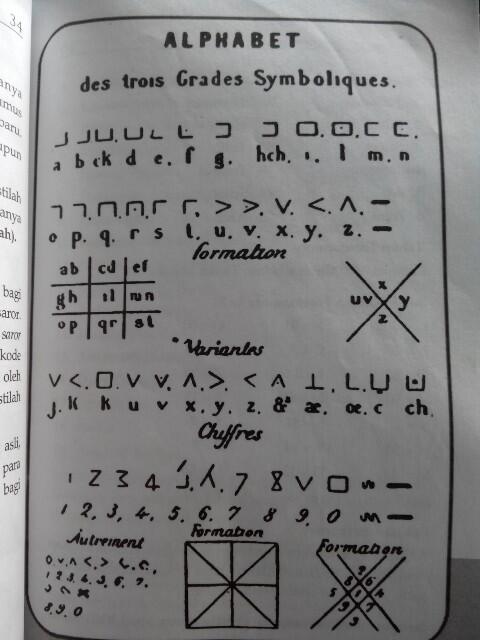 34
ALPHABET
des trois Grades Symboliques.
a b ck d e. f g. hch. ı. l m. n
o p. q. r s t. u. v. x. y. z. —
formation
ab cd ef
gh il mn
op qr st
x
uv y
z
Variantes
j. k k u v x. y. z. & æ. œ. c ch.
Chiffres
1 2 3 4 7 8
1 2, 3, 4, 5. 6. 7 8 9. 0
Autrement
Formation
Formation
1 2 3. 4. 5, 6. 7.
8. 9. 0
anya
mus
baru.
upun
stilah
anya
ah).
bagi
saror.
saror
kode
oleh
stilah
asli,
para
bagi